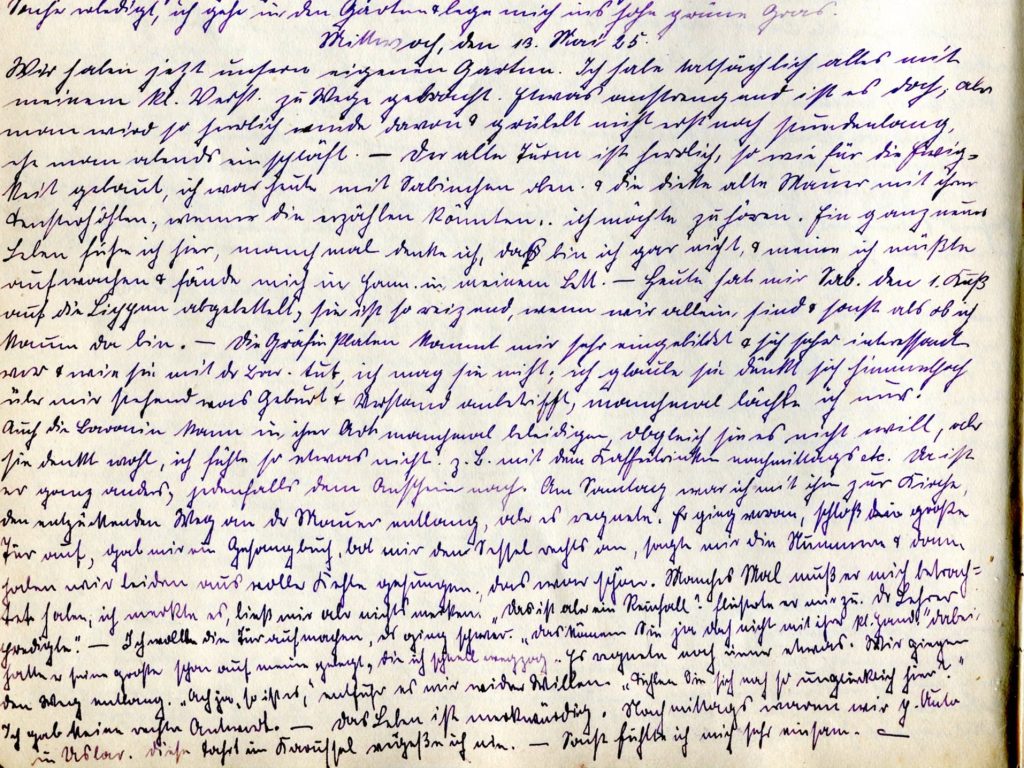 Sache erledigt, ich gehe in den Garten & lege mich ins hohe grüne Gras.
Mittwoch, den 13. Mai 25.
Wir haben jetzt unsern eigenen Garten. Ich habe tatsächlich alles mit
meinem kl. Verst. zu Wege gebracht. Etwas anstrengend ist es doch, aber
man wird so herrlich müde davon & grübelt nicht erst noch stundenlang,
ehe man abends einschläft. — Der alte Turm ist herrlich, so wie für die Ewig-
keit gebaut, ich war heute mit Sabinchen oben. & die dicke alte Mauer mit ihren
Fensterhöhlen, wenn die erzählen könnten, ich möchte zuhören. Ein ganz neues
Leben führe ich hier, manchmal denke ich, das bin ich gar nicht, & meine ich müßte
aufwachen & fände mich in Hann. in meinem Bett. — Heute hat mir Sab. den 1. Kuß
auf die Lippen abgebettelt, sie ist so reizend, wenn wir allein sind & sonst als ob ich
kaum da bin. — Die Gräfin Platen kommt mir sehr eingebildet & sich sehr interessant
vor & wie sie mit der Bar. tut, ich mag sie nicht; ich glaube sie dünkt sich himmelhoch
über mir stehend was Geburt & Verstand anbetrifft, manchmal lächle ich nur!
Auch die Baronin kann in ihrer Art manchmal beleidigen, obgleich sie es nicht will, oder
sie denkt wohl, ich fühle so etwas nicht. z. B. mit dem Kaffeetrinken nachmittags etc. Da ist
er ganz anders, jedenfalls dem Anschein nach. Am Sonntag war ich mit ihm zur Kirche,
den entzückenden Weg an der Mauer entlang, aber es regnete. Er ging voran, schloß die große
Tür auf, gab mir ein Gesangbuch, bot mir den Sessel rechts an, sagte mir die Nummern & dann
haben wir beiden aus voller Kehle gesungen, das war schön. Manches Mal muß er mich betrach-
tet haben, ich merkte es, ließ mir aber nichts merken. „Das ist aber ein Reinfall" flüsterte er mir zu. Der Lehrer
predigte. — Ich wollte die Tür aufmachen, es ging schwer. „Das können Sie ja doch nicht mit ihrer kl. Hand" dabei
hatte er seine große schon auf meine gelegt, die ich schnell wegzog. Es regnete noch immer etwas. Wir gingen
den Weg entlang. „Ach ja, so ist es," entfuhr es mir wider Willen. „Fühlen Sie sich noch so unglücklich hier?"
Ich gab keine rechte Antwort. — Das Leben ist merkwürdig. Nachmittags waren wir p. Auto
in Uslar. Diese Fahrt im Karussel vergeße ich nie. — Sonst fühlte ich mich sehr einsam. —